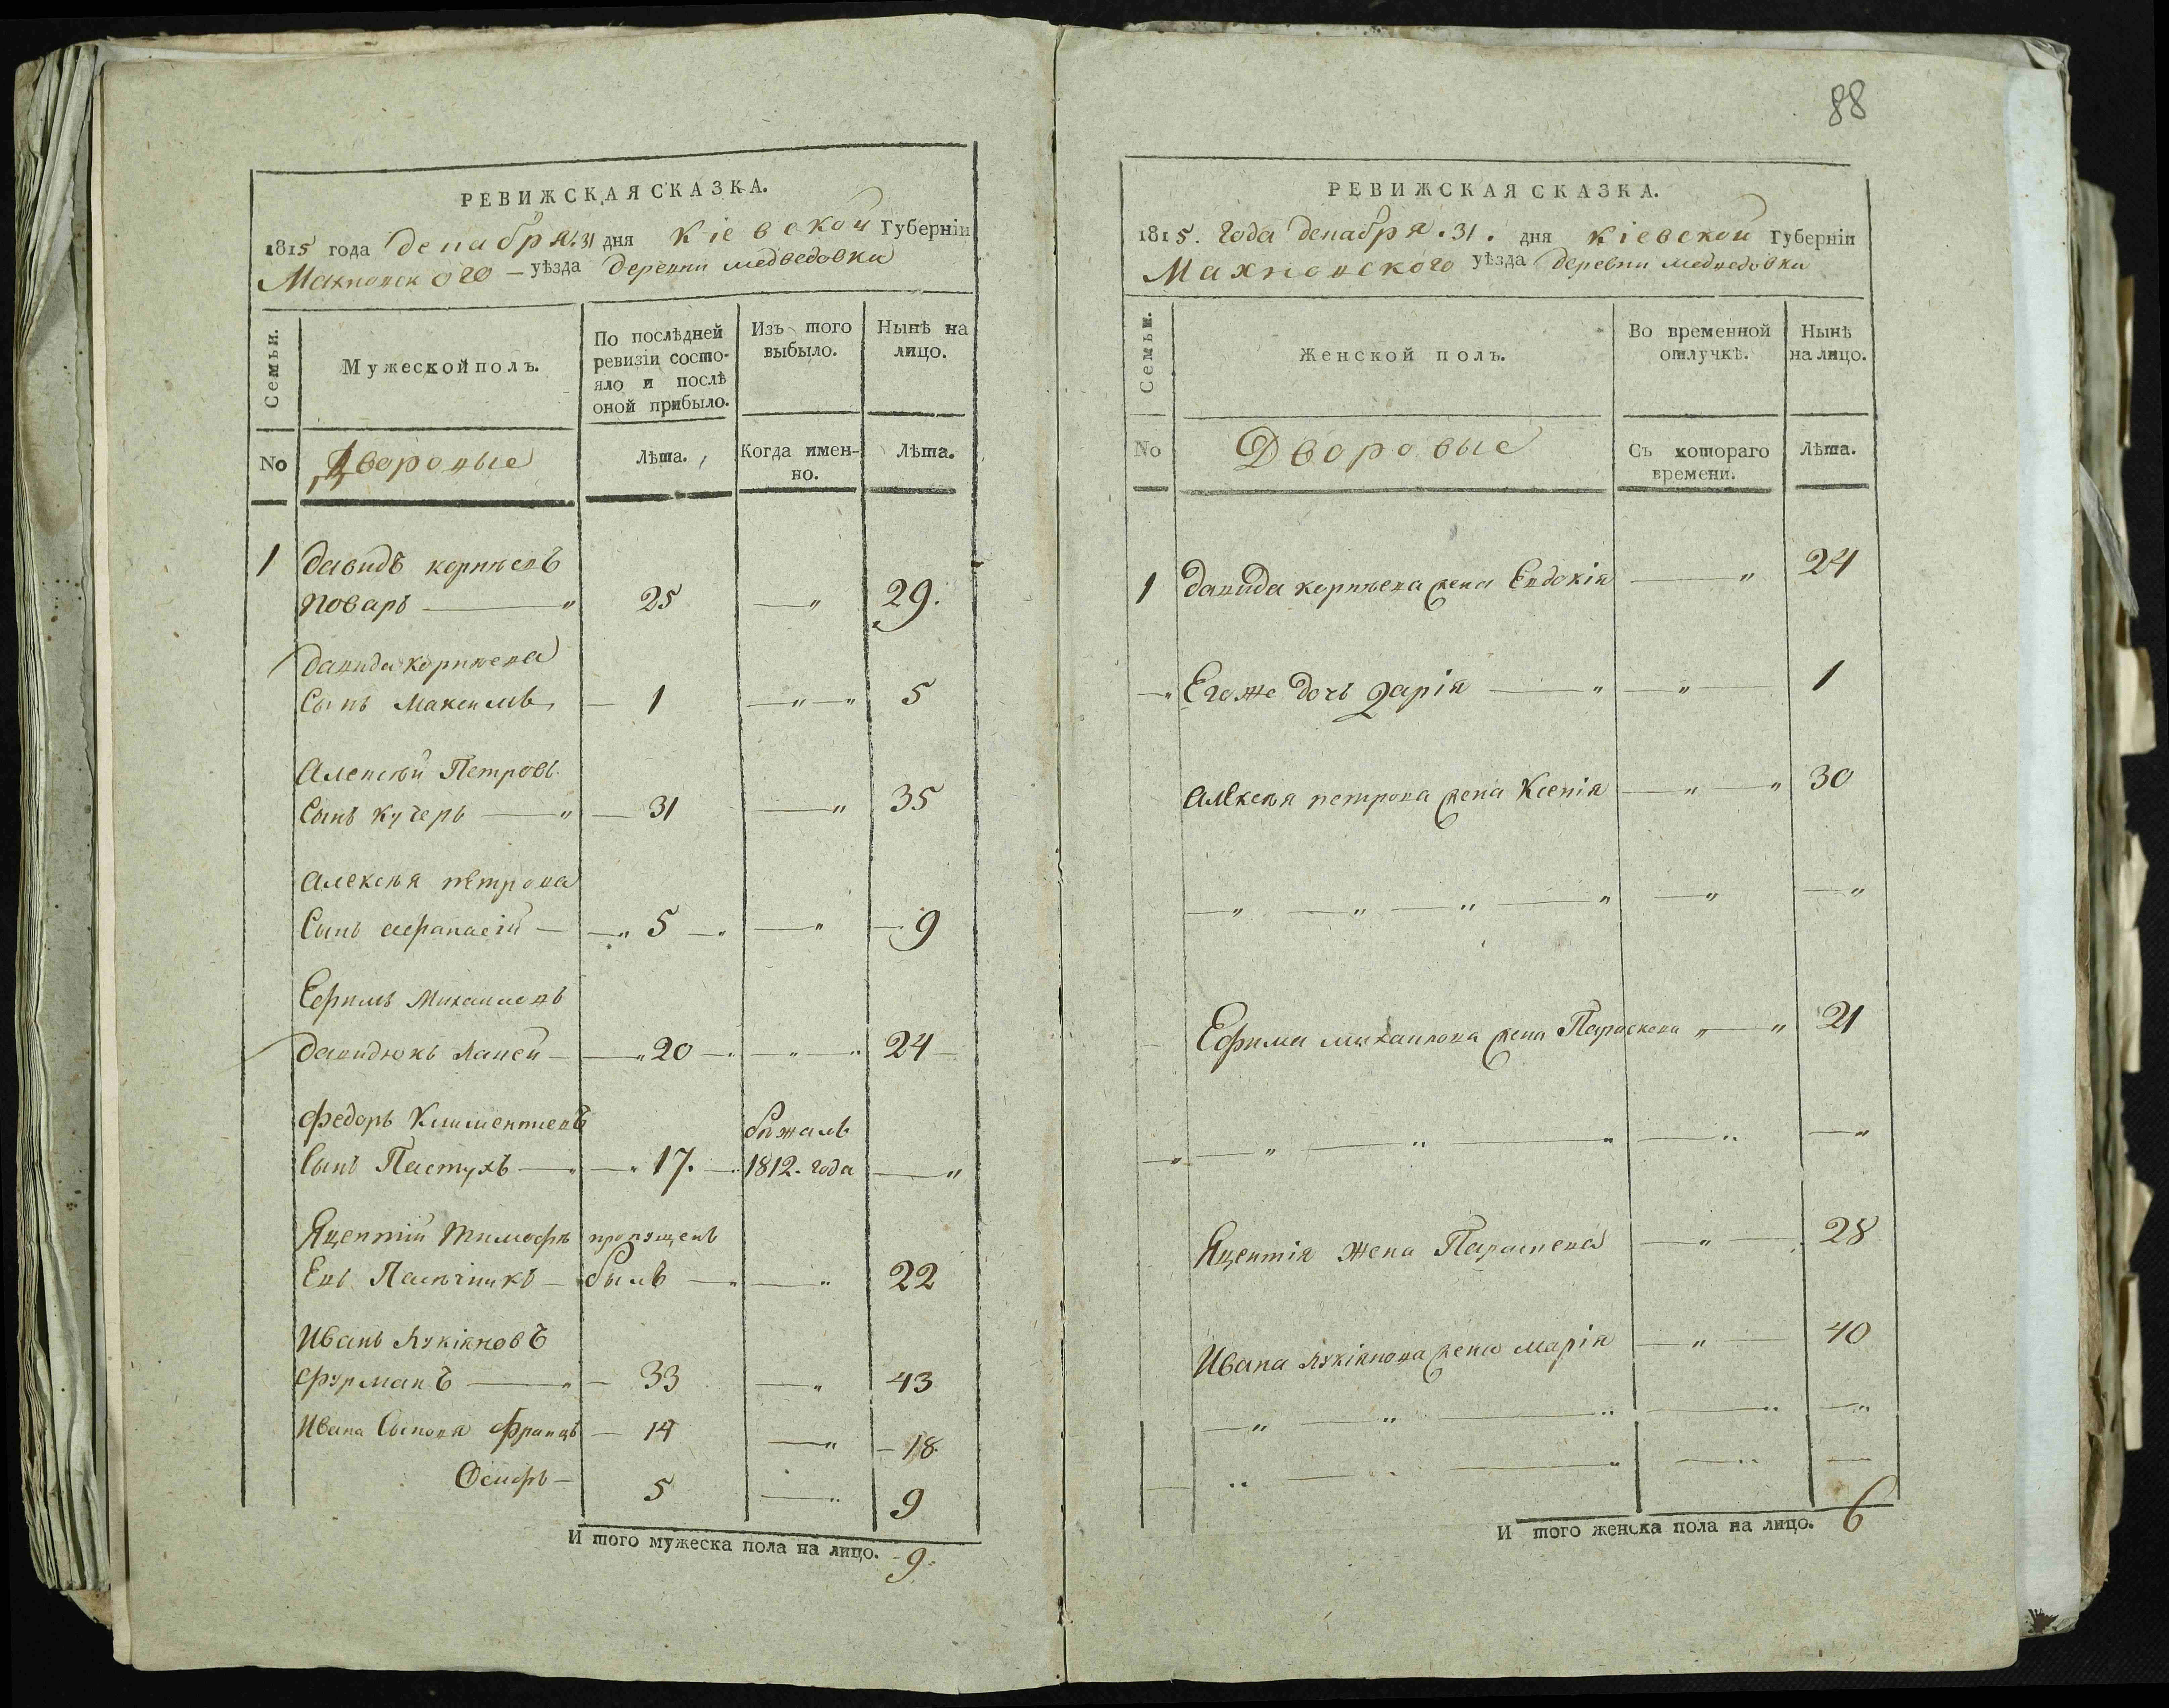 РЕВИЖСКАЯ СКАЗКА.
1815 года декабря 31 дня Кіевской Губерніи
Махновского уѣзда деревни медведовки
Семьи.
Мужеской полъ.
По послѣдней ревизіи состояло и послѣ оной прибыло.
Изъ того выбыло.
Нынѣ на лицо.
No
Дворовые
Лѣта.
Когда именно.
Лѣта.
1 давидъ корнѣевъ
поваръ — " 25 — " 29.
давида корнѣева
Сынъ Максимъ — 1 — " — " 5
Алексѣй Петровъ
Сынъ кучеръ — " — 31 — " 35
алексѣя петрова
Сынъ афанасій — — " 5 — " — " — 9
Ефимъ Михаиловъ
давидюкъ лакей — — " 20 — " — " — " 24 —
федоръ Климентиевъ бѣжалъ
Сынъ Пастухъ — " — " 17. — " 1812. года — "
Яцентій тимофѣ пропущенъ
Евъ Пасѣчникъ — былъ — " — " 22
Иванъ лукіяновъ
фурманъ — " — 33 — " 43
Ивана Сынови францъ — 14 — " — 18
Осифъ — 5 — " 9
И того мужеска пола на лицо. 9.
88
РЕВИЖСКАЯ СКАЗКА.
1815. года декабря .31. дня кіевской Губерніи
Махновского уѣзда деревни медведовки
Семьи.
Женской полъ.
Во временной отлучкѣ.
Нынѣ на лицо.
No
Дворовые
Съ котораго времени.
Лѣта.
1 давида корнѣева жена Евдокія — " 24
— " Егоже дочь дарія — " — " — 1
алексѣя петрова жена Ксенія — " — " 30
— " — " — " — " — " — "
Ефима михаилова жена Параскева " — " 21
— " — " — " — " — " — "
Яцентія жена Параскева — " — 28
Ивана лукіянова жена марія — " — 40
— " — " — " — " — "
— " — " — " — " —
И того женска пола на лицо. 6